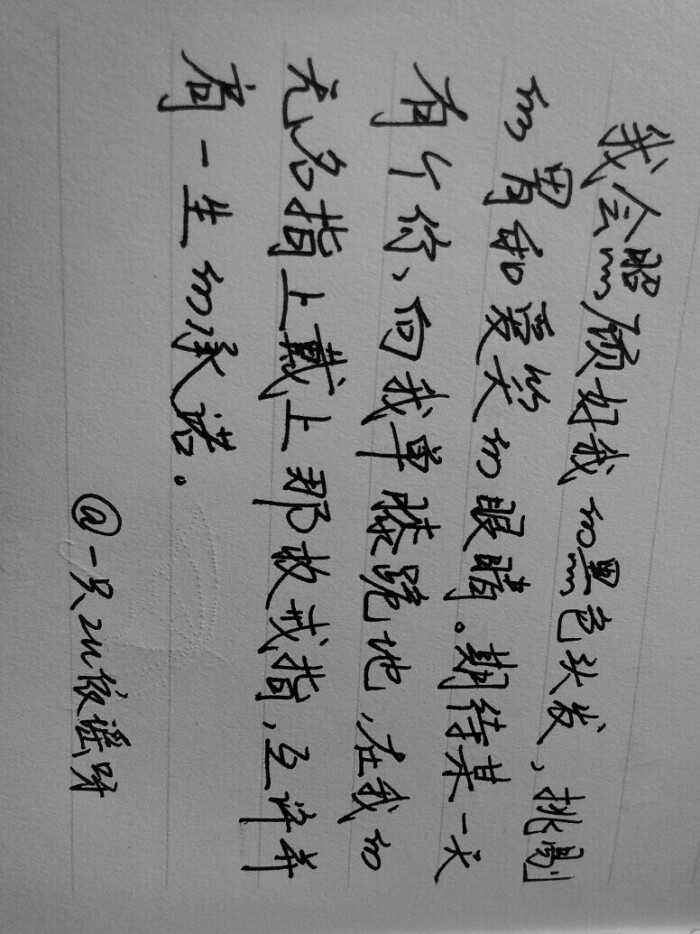 我会照顾好我的黑色头发、挑剔
的胃和爱笑的眼睛。期待某一天
有个你、向我单膝跪地,在我的
无名指上戴上那枚戒指,互许
有一生的承诺。
@一只